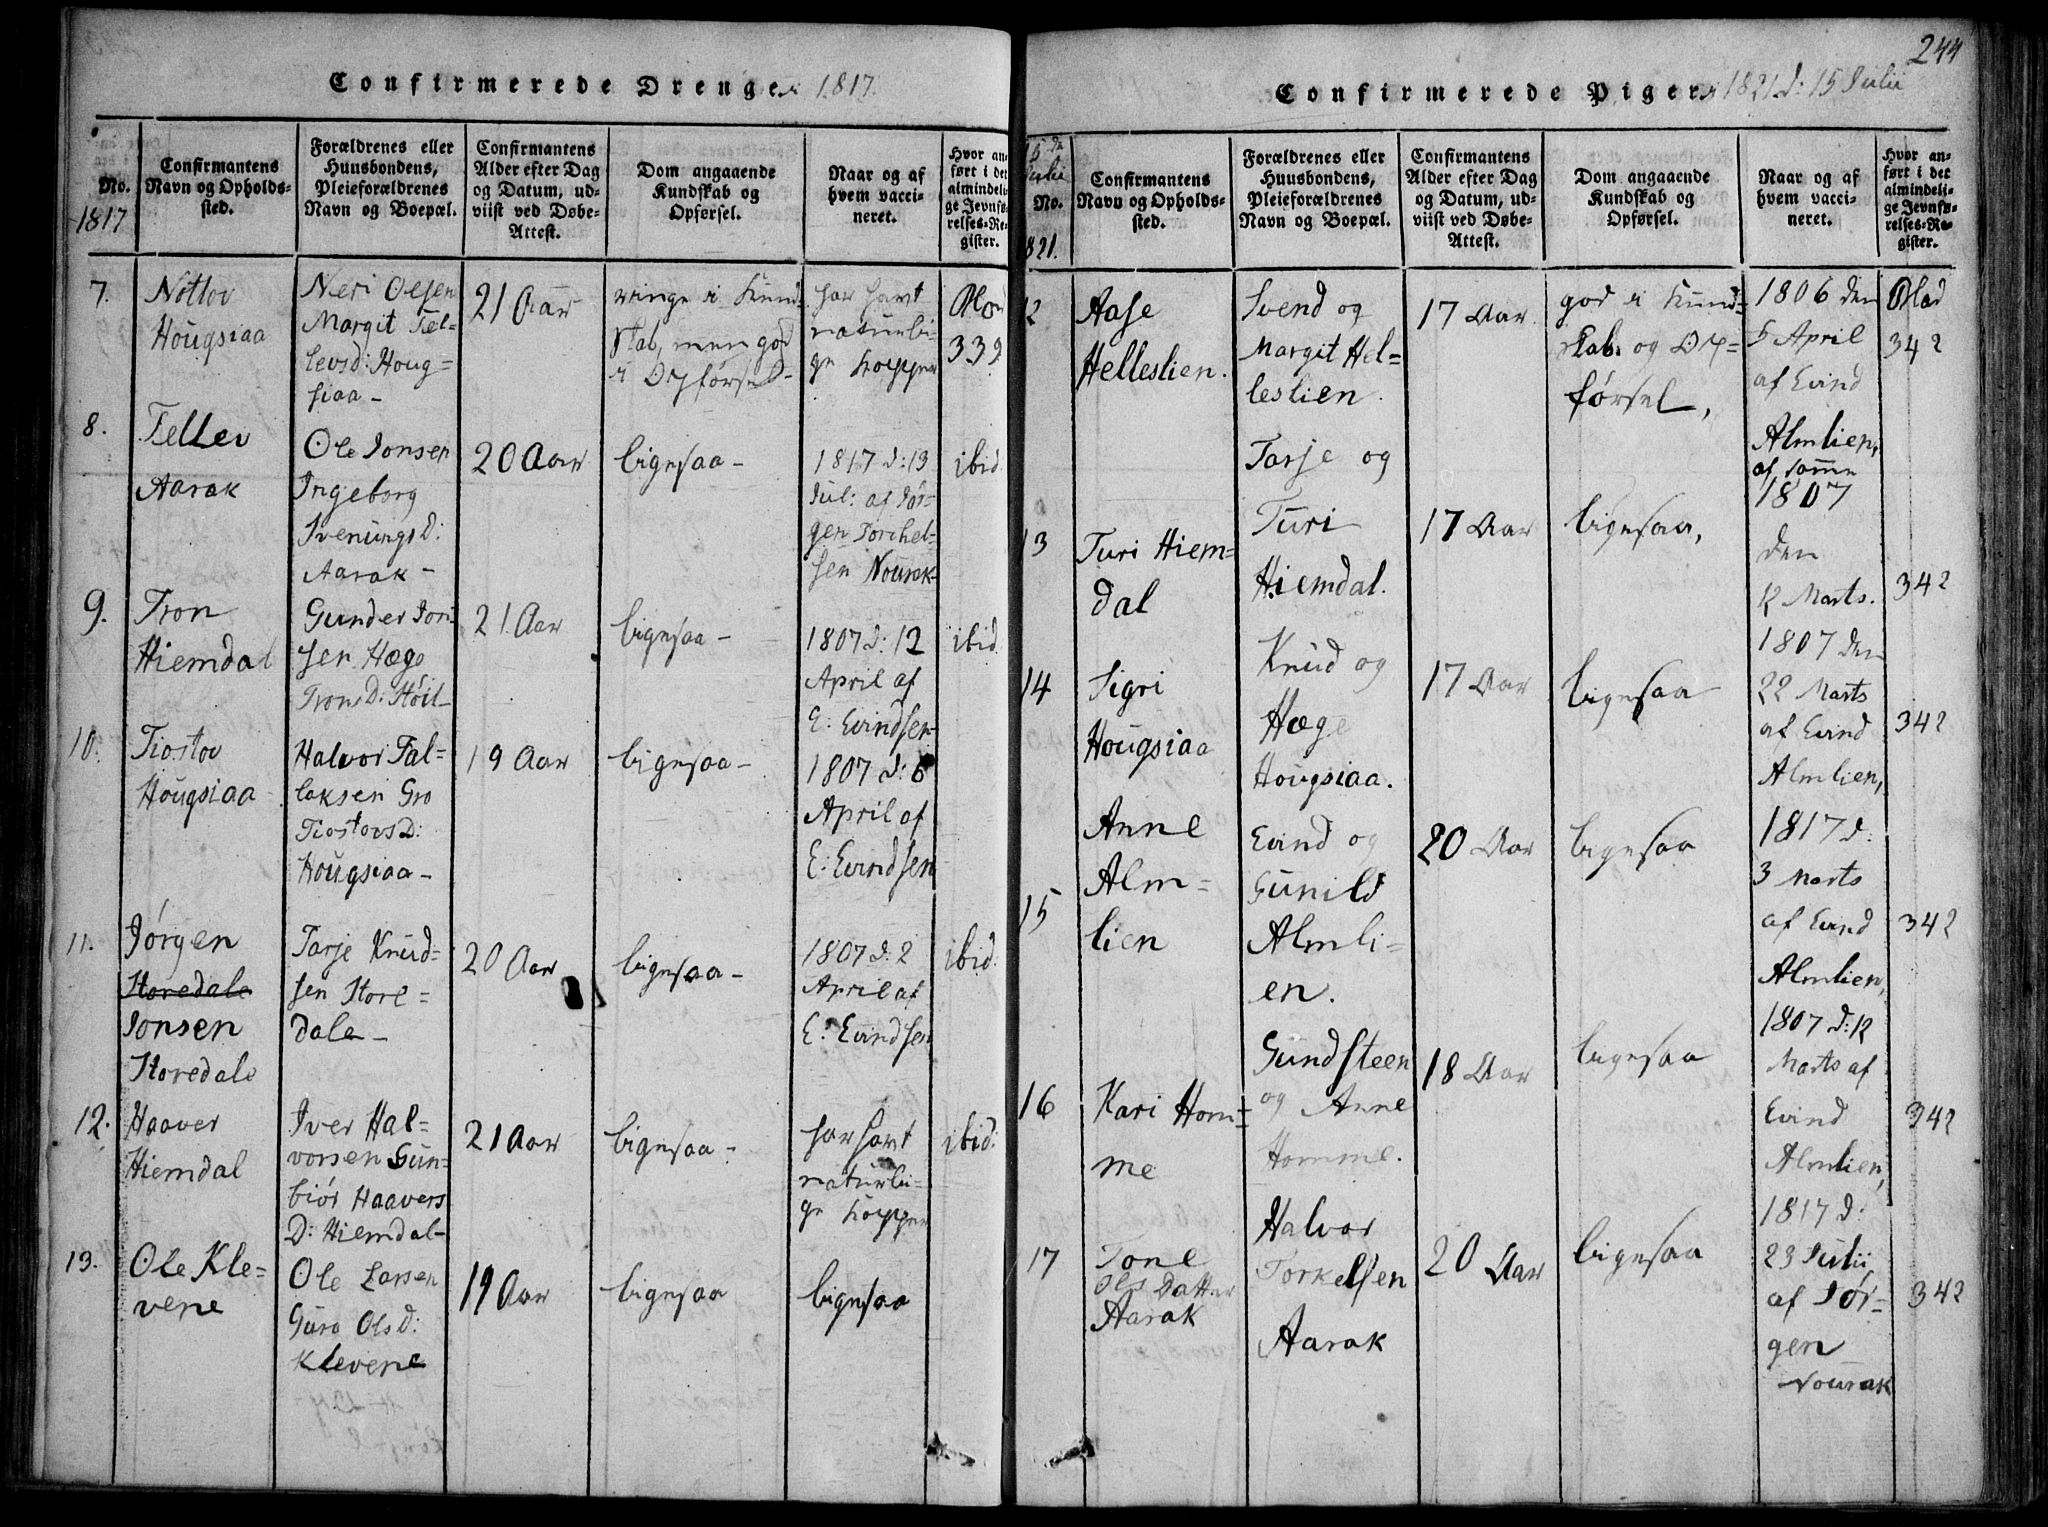 Confirmerede Drenge i 1817.
No.
1817
Confirmantens
Navn og Opholds-
sted.
Forældrenes eller
Huusbondens,
Pleieforældrenes
Navn og Boepæl.
Confirmantens
Alder efter Dag
og Datum, ud-
viist ved Døbe-
Attest.
Dom angaaende
Kundskab og
Opførsel.
Naar og af
hvem vacci-
neret.
Hvor an-
ført i det
almindeli-
ge Jevnfø-
relses-Re-
gister.
7.
Nottov
Hougsiaa
Neri Olsen
Margit Tel-
levsd: Houg-
siaa -
21 Aar
ringe i Kund-
skab, men god
i Opførsel -
har havt
naturli-
ge Kopper
Blad
339
8.
Tellev
Aarak
Ole Jonsen
Ingeborg
Svenungs D:
Aarak -
20 Aar
ligesaa -
1817 d: 13
Jul: af Jør-
gen Torchel-
sen Nourak
ibid
9.
Tron
Hiemdal
Gunder Jon-
sen Hæge
Trons D: Høil-
21 Aar
ligesaa -
1807 d: 12
April af
E: Evindsen
ibid
10.
Tiostov
Hougsiaa
Halvor Tal-
laksen Gro
Tiostovs D:
Hougsiaa -
19 Aar
ligesaa -
1807 d: 6
April af
E: Evindsen
11.
Jørgen
Storedale
Jonsen
Storedale
Tarje Knud-
sen Store-
dale -
20 Aar
ligesaa -
1807 d: 2
April af
E: Evindsen
ibid:
12.
Haaver
Hiemdal
Iver Hal-
vorsen Gun-
biør Haavers
D: Hiemdal -
21 Aar
ligesaa -
har havt
naturli-
ge Kopper
ibid:
13.
Ole Kle-
vene
Ole Larsen
Guro Ols D:
Klevene
19 Aar
ligesaa
ligesaa
244
Confirmerede Piger i 1821 d: 15 Julii
15 da
Julii
No.
821.
Confirmantens
Navn og Opholds-
sted.
Forældrenes eller
Huusbondens,
Pleieforældrenes
Navn og Boepæl.
Confirmantens
Alder efter Dag
og Datum, ud-
viist ved Døbe-
Attest.
Dom angaaende
Kundskab og
Opførsel.
Naar og af
hvem vacci-
neret.
Hvor an-
ført i det
almindeli-
ge Jevnfø-
relses-Re-
gister.
12
Aase
Helleslien.
Svend og
Margit Hel-
leslien.
17 Aar
god i Kund-
skab og Op-
førsel,
1806 den
5 April
af Evind
Almlien,
Blad
342
13
Turi Hiem-
dal
Tarje og
Turi
Hiemdal.
17 Aar
ligesaa,
af samme
1807
den
12 Marts.
342
14
Sigri
Hougsiaa
Knud og
Hæge
Hougsiaa.
17 Aar
ligesaa
1807 den
22 Marts
af Evind
Almlien,
342
15
Anne
Alm-
lien
Evind og
Gunild
Almli-
en.
20 Aar
ligesaa
1817 d:
3 Marts
af Evind
Almlien,
342
16
Kari Hom-
me
Gundsteen
og Anne
Homme.
18 Aar
ligesaa
1807 d: 12
Marts af
Evind
Almlien,
342
17
Tone
Ols Datter
Aarak
Halvor
Torkelsen
Aarak
20 Aar
ligesaa
1817 d:
23 Julii
af Jør-
gen
Nourak
342